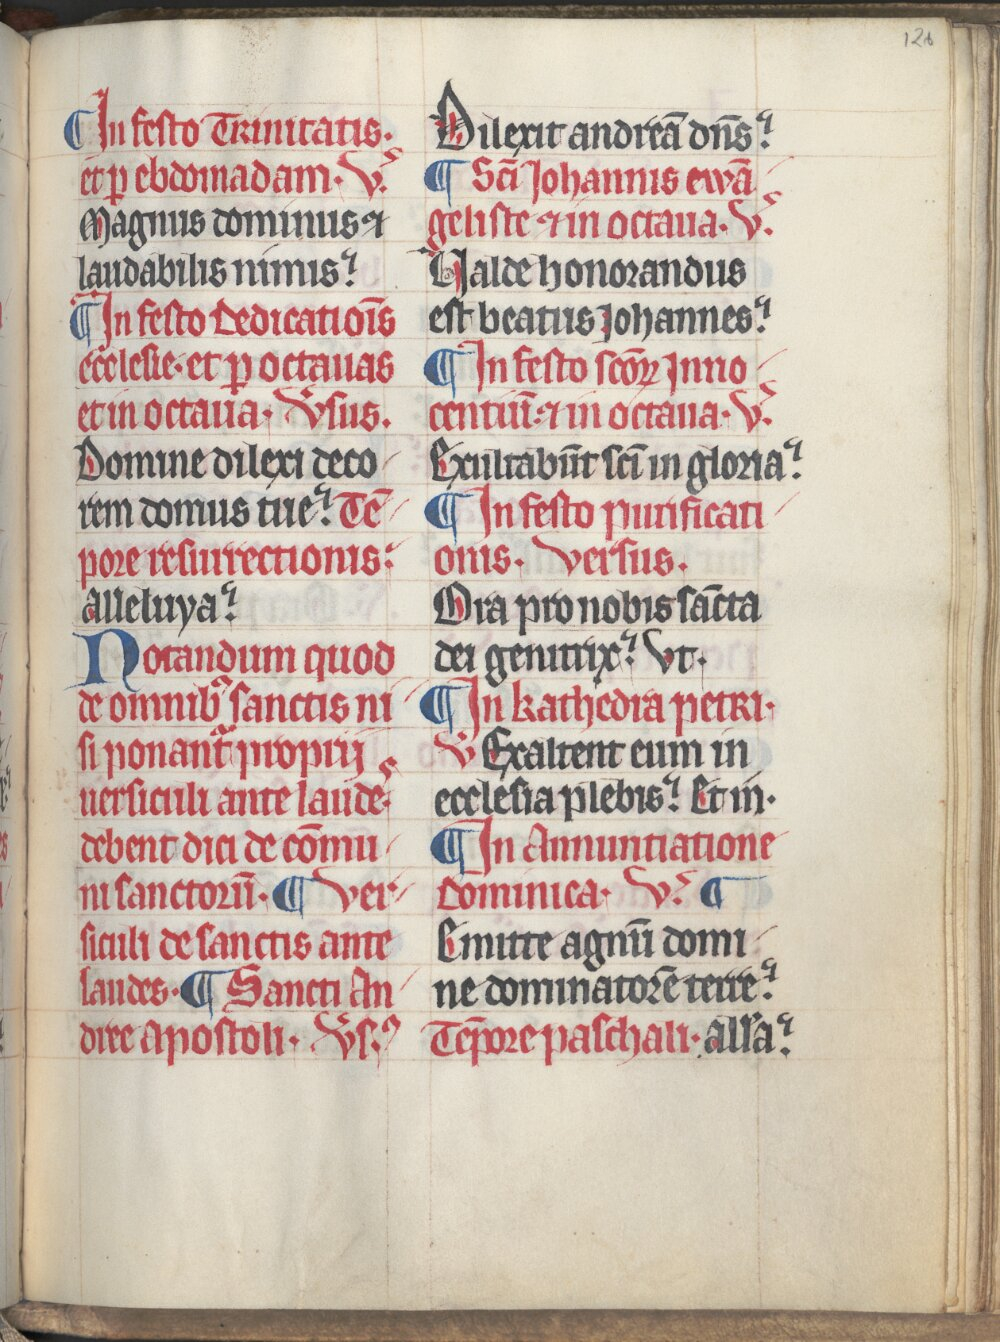 126
¶ In festo Trinitatis.
et p̱ ebdomadam. V̓.
Magnus dominus ⁊
laudabilis nimis.
¶ In festo dedicatiōis
ecclesie. et p̱ octauas
et in octaua. V̓sus.
Domine dilexi deco
rem domus tue. Tē
pore resurrectionis.
alleluya.
Notandum quod
de omnibꝰ sanctis ni
si ponant᷑ proprij
uersiculi ante laude.
debent dici de cōmu
ni sanctorū. ¶ Ver
siculi de sanctis ante
laudes. ¶ Sancti An
dree apostoli. V̓s.
Dilexit andreā dn̄s.
¶ Sc̄i Johannis ewā
geliste ⁊ in octaua. V̓.
Valde honorandus
est beatus Johannes.
¶ In festo sc̄oꝝ Inno
centiū. ⁊ in octaua. V̓.
Exultabūt sc̄i in gloria.
¶ In festo purificati
onis. Versus.
Ora pro nobis sācta
dei genitrix. Vt.
¶ In kathedra petri.
V̓ Exaltent eum in
ecclesia plebis. Et in.
¶ In Annuntiatione
dominica. V̓. ¶
Emitte agnū domi
ne dominatorē terre.
Tēpore paschali. all̓a.